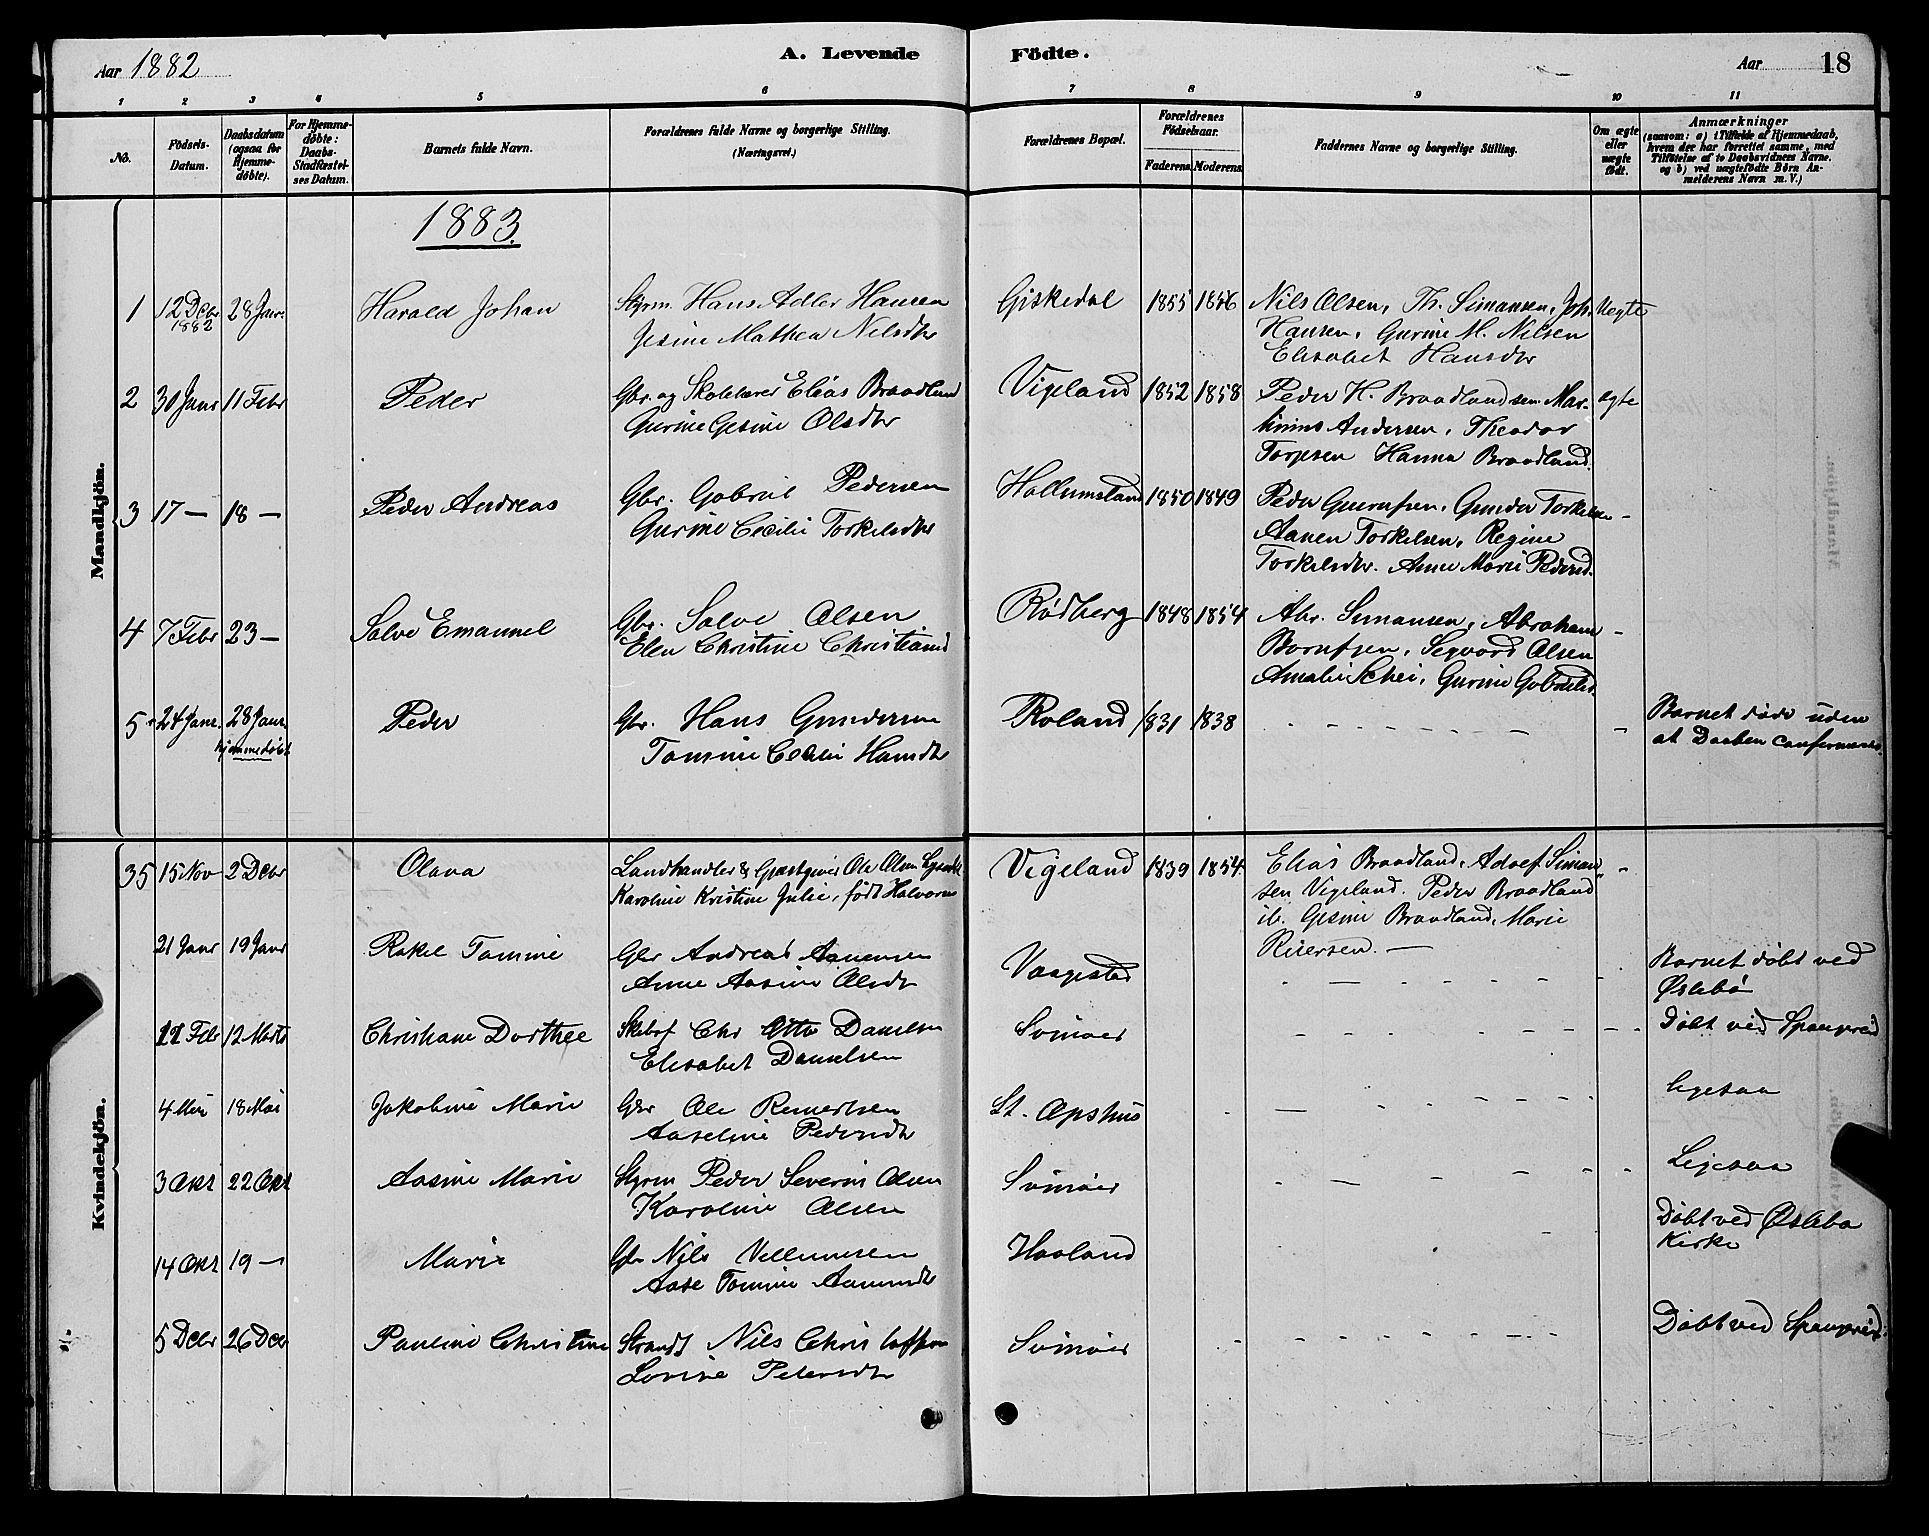 Aar 1882
A. Levende Födte.
Aar 18
1 2 3 4 5 6 7 8 9 10 11
No.
Födsels-Datum.
Daabsdatum (ogsaa for Hjemmedöbte).
For Hjemmedöbte: Daabs-Stadfæstelses Datum.
Barnets fulde Navn.
Forældrenes fulde Navne og borgerlige Stilling.
(Næringsvei.)
Forældrenes Bopæl.
Forældrenes Födselsaar.
Faderens. Moderens.
Faddernes Navne og borgerlige Stilling.
Om ægte eller uægte födt.
Anmærkninger
(saasom: a) i Tilfælde af Hjemmedaab, hvem der har forrettet samme, med Tilföielse af to Daabsvidners Navne. og b) ved uægtefödte Börn Anmelderens Navn m. V.)
Mandkjön.
1883
1 12 Decbr 1882 28 Janr. Harald Johan
Styrm. Hans Adler Hansen
Jesine Mathea Nilsdtr
Giskedal 1855 1856
Nils Olsen, Th. Simonsen, Joh.
Hansen, Gurine M. Nilsen
Elisabet Hansdtr
Uegte
2 30 Janr 11 Febr Peder
Gbr. og Skolelærer Elias Braadland
Gurine Gesine Olsdtr
Vigeland 1852 1858
Peder H. Braadland sen. Mar-
tinius Andersen, Theodor
Torjesen Hanna Braadland
ægte
3 17 — 18 — Peder Andreas
Gbr. Gabriel Pedersen
Gurine Cecilie Torkelsdtr
Hallumsland 1850 1849
Peder Gunufsen, Gunder Torkelsen
Aanen Torkelsen, Regine
Torkelsdtr. Anne Marie Pedersd.
-
4 7 Febr 23 — Salve Emanuel
Gbr. Salve Olsen
Elen Christine Christiansd
Rødberg 1848 1854
Abr. Simonsen, Abraham
Berntsen, Segvard Olsen
Amalie Schei, Gurine
-
5 24 Janr. 28 Janr. hjemmedøbt Peder
Gbr. Hans Gundersen
Tomine Cecilie Hansdtr
Roland 1831 1838
- - - - - - -
Barnet døde uden
at Daaben confirmeres.
Kvindekjön.
35 15 Nov 2 Decbr Olava
Landhandler & Gjæstgiver Ole Olsen
Karoline Kristine Julie, født Halvorsen
Vigeland 1839 1854
Elias Braadland, Adolf Simon-
sen Vigeland. Peder Braadland
ib. Gesine Braadland, Marie
Reiersen. —
-
21 Janr 19 Janr Rakel Tomine
Gbr Andreas Aanensen
Anne Aasine Olsdtr
Vaagestad
- - - - - - -
Barnet døbt ved
Øslebø
11 Febr 12 Marts Christiane Dorthee
Chr Otto Danielsen
Elisabet Danielsen
Svinøer
- - - - - - -
Døbt ved Spangreid
4 Mai 18 Mai Jakobine Marie
Gbr Ole Reinertsen
Aaseline Pedersdtr
St. Opshus
- - - - - - -
Ligesaa
3 Okt 22 Okt Aasine Marie
Styrm Peder Severin Olsen
Karoline Olsen
Svinøer
- - - - - - -
Ligesaa
14 Okt 19 — Marie
Gbr Nils Vellumsen
Aase Tomine Aanensdtr
Haaland
- - - -
Døbt ved Øslebø
Kirke
5 Decbr 26 Decbr Pauline Christine
Strands Nils Christoffersen
Lovise Petersdtr
Svinøer
- - - - - - -
Døbt ved Spangreid.